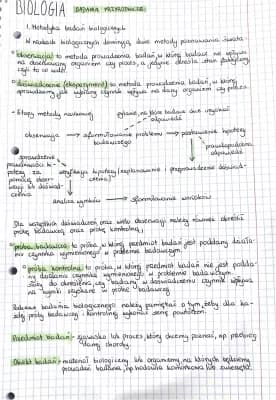 BIOLOGIA BADANIA PRZYRODNICZE
1. Metodyka badań biologicznych
W naukach biologicznych dominują dwie metody poznawania świata:
obserwacja) to metoda prowadzenia badań, w której badacz nie wpływa
na obserwowany organizm czy proces, a jedynie określa stan faktyczny,
czyli to co widzi.
doświadczenie (eksperyment) to metoda prowadzenia badań, w której
sprawdzamy jak wybrany czynnik wpływa na dany organizm czy proces.
- Etapy metody naukowej pytanie, na które badacz chce uzyskać
odpowiedź
obserwacja → sformułowanie problemu → postawienie hipotezy
badawczego
prawdopodobna
odpowiedź
sprawdzenie
prawdziwości hipo-
tezy za weryfikacja hipotezy (zaplanowanie i przeprowadzenie doświad-
pomocą obser- czenia)
wacji lub doświad-
czenia
analiza wyników → sformułowanie wniosków
Dla wszystkich doświadczeń oraz wielu obserwacji należy również określić
próbę badawczą oraz próbę kontrolną;
próba badawcza to próba, w której przedmiot badań jest poddany działa-
niu czynnika wymienionego w problemie badawczym.
próba kontrolna to próba, w której przedmiot badań nie jest podda-
ny działaniu czynnika wymienionego w problemie badawczym.
Służy do określenia, czy badany w doświadczeniu czynnik wpływa
na wyniki uzyskane w próbie badawczej.
badania biologicznego należy pamiętać o tym, żeby dla każ-
dej próby badawczej i kontrolnej wykonać serię powtórzeń.
Przedmiot badań - zjawisko lub proces, który chcemy poznać, np.
danej choroby.
Obiekt badań - materiał biologiczny lub organizmy na których będziemy
prowadzić badania, np. badania komórkowe lub zwierzęta.